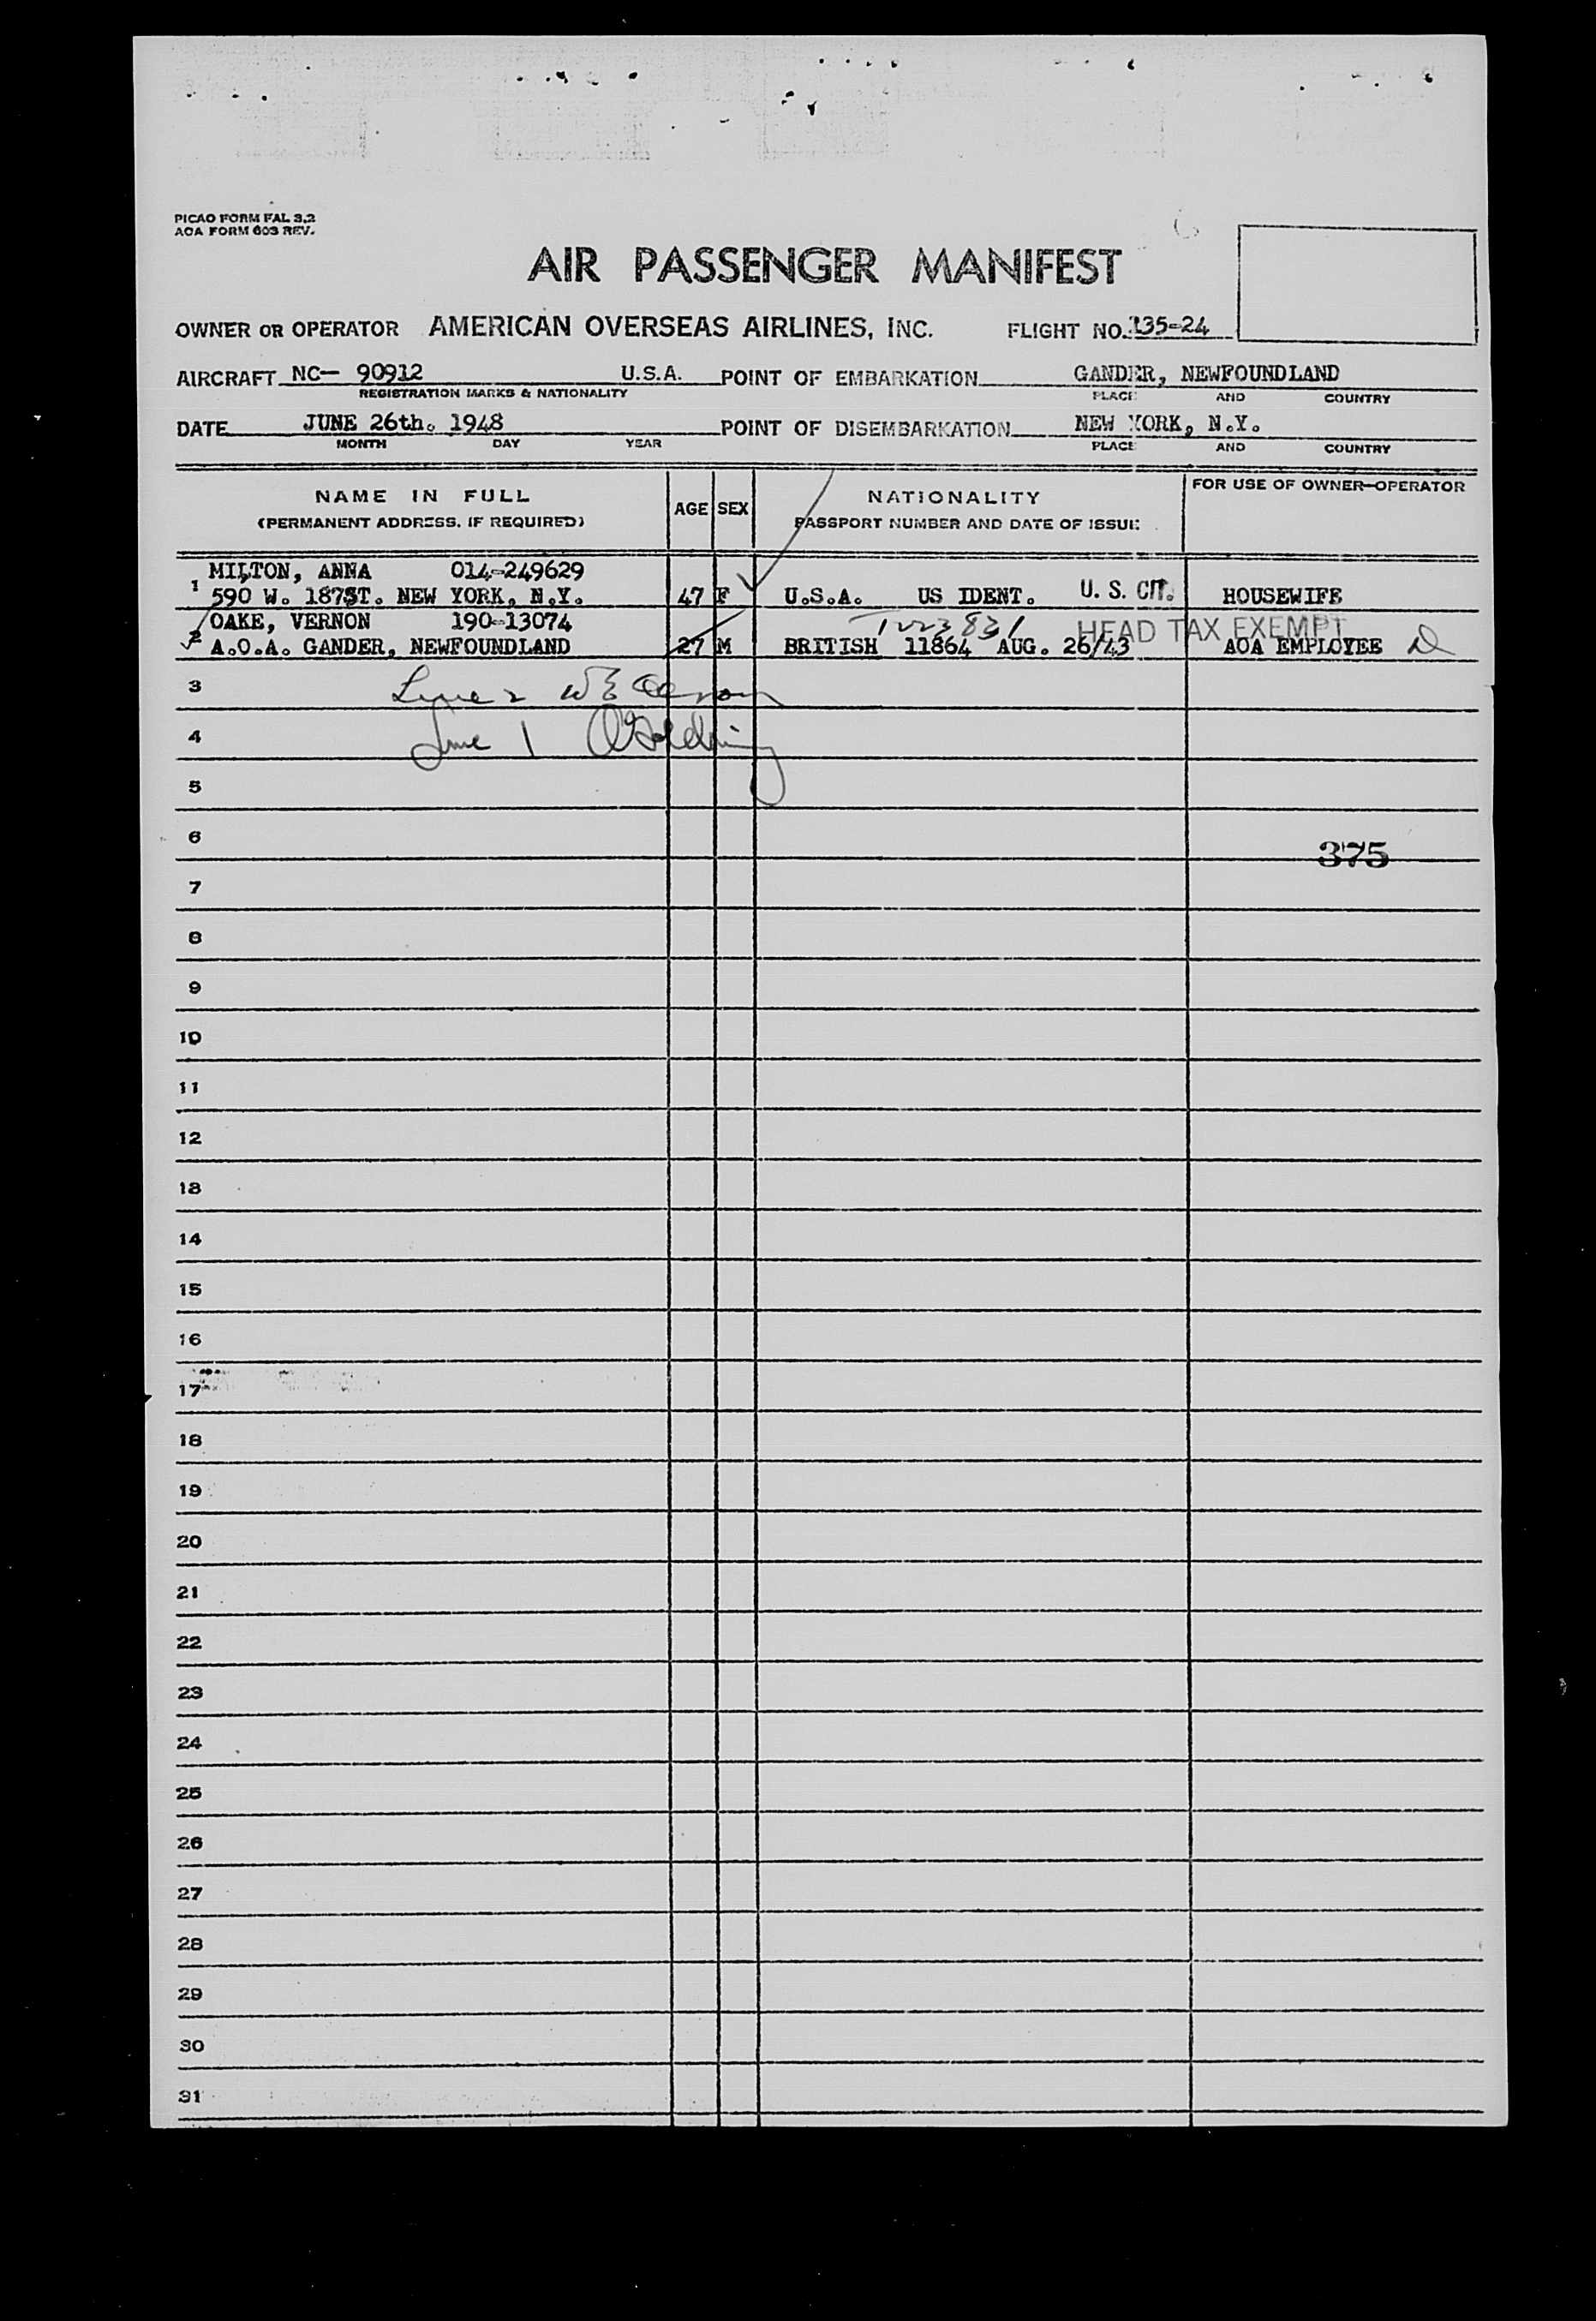 PICAO FORM FAL 3.2
AOA FORM 603 REV.
AIR PASSENGER MANIFEST
OWNER OR OPERATOR AMERICAN OVERSEAS AIRLINES, INC. FLIGHT NO. 135-24
AIRCRAFT NC- 90912 U.S.A. POINT OF EMBARKATION GANDER, NEWFOUNDLAND
REGISTRATION MARKS & NATIONALITY PLACE AND COUNTRY
DATE JUNE 26th. 1948 POINT OF DISEMBARKATION NEW YORK, N.Y.
MONTH DAY YEAR PLACE AND COUNTRY
NAME IN FULL
(PERMANENT ADDRESS, IF REQUIRED)
AGE SEX
NATIONALITY
PASSPORT NUMBER AND DATE OF ISSUE
FOR USE OF OWNER-OPERATOR
MILTON, ANNA 014-249629
1 590 W. 187ST. NEW YORK, N.Y. 47 F U.S.A. US IDENT. U. S. CIT. HOUSEWIFE
OAKE, VERNON 190-13074 HEAD TAX EXEMPT
2 A.O.A. GANDER, NEWFOUNDLAND 27 M BRITISH 11864 AUG. 26/43 AOA EMPLOYEE D
3 Line 2
4 Line 1
5
6
375
7
8
9
10
11
12
13
14
15
16
17
18
19
20
21
22
23
24
25
26
27
28
29
30
31